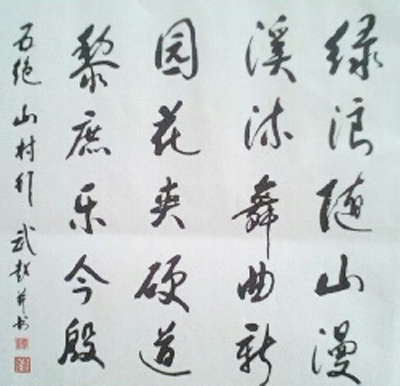 绿浪随山漫
溪流舞曲新
园花夹硬道
黎庶乐今殷
五绝 山村行 武越并书